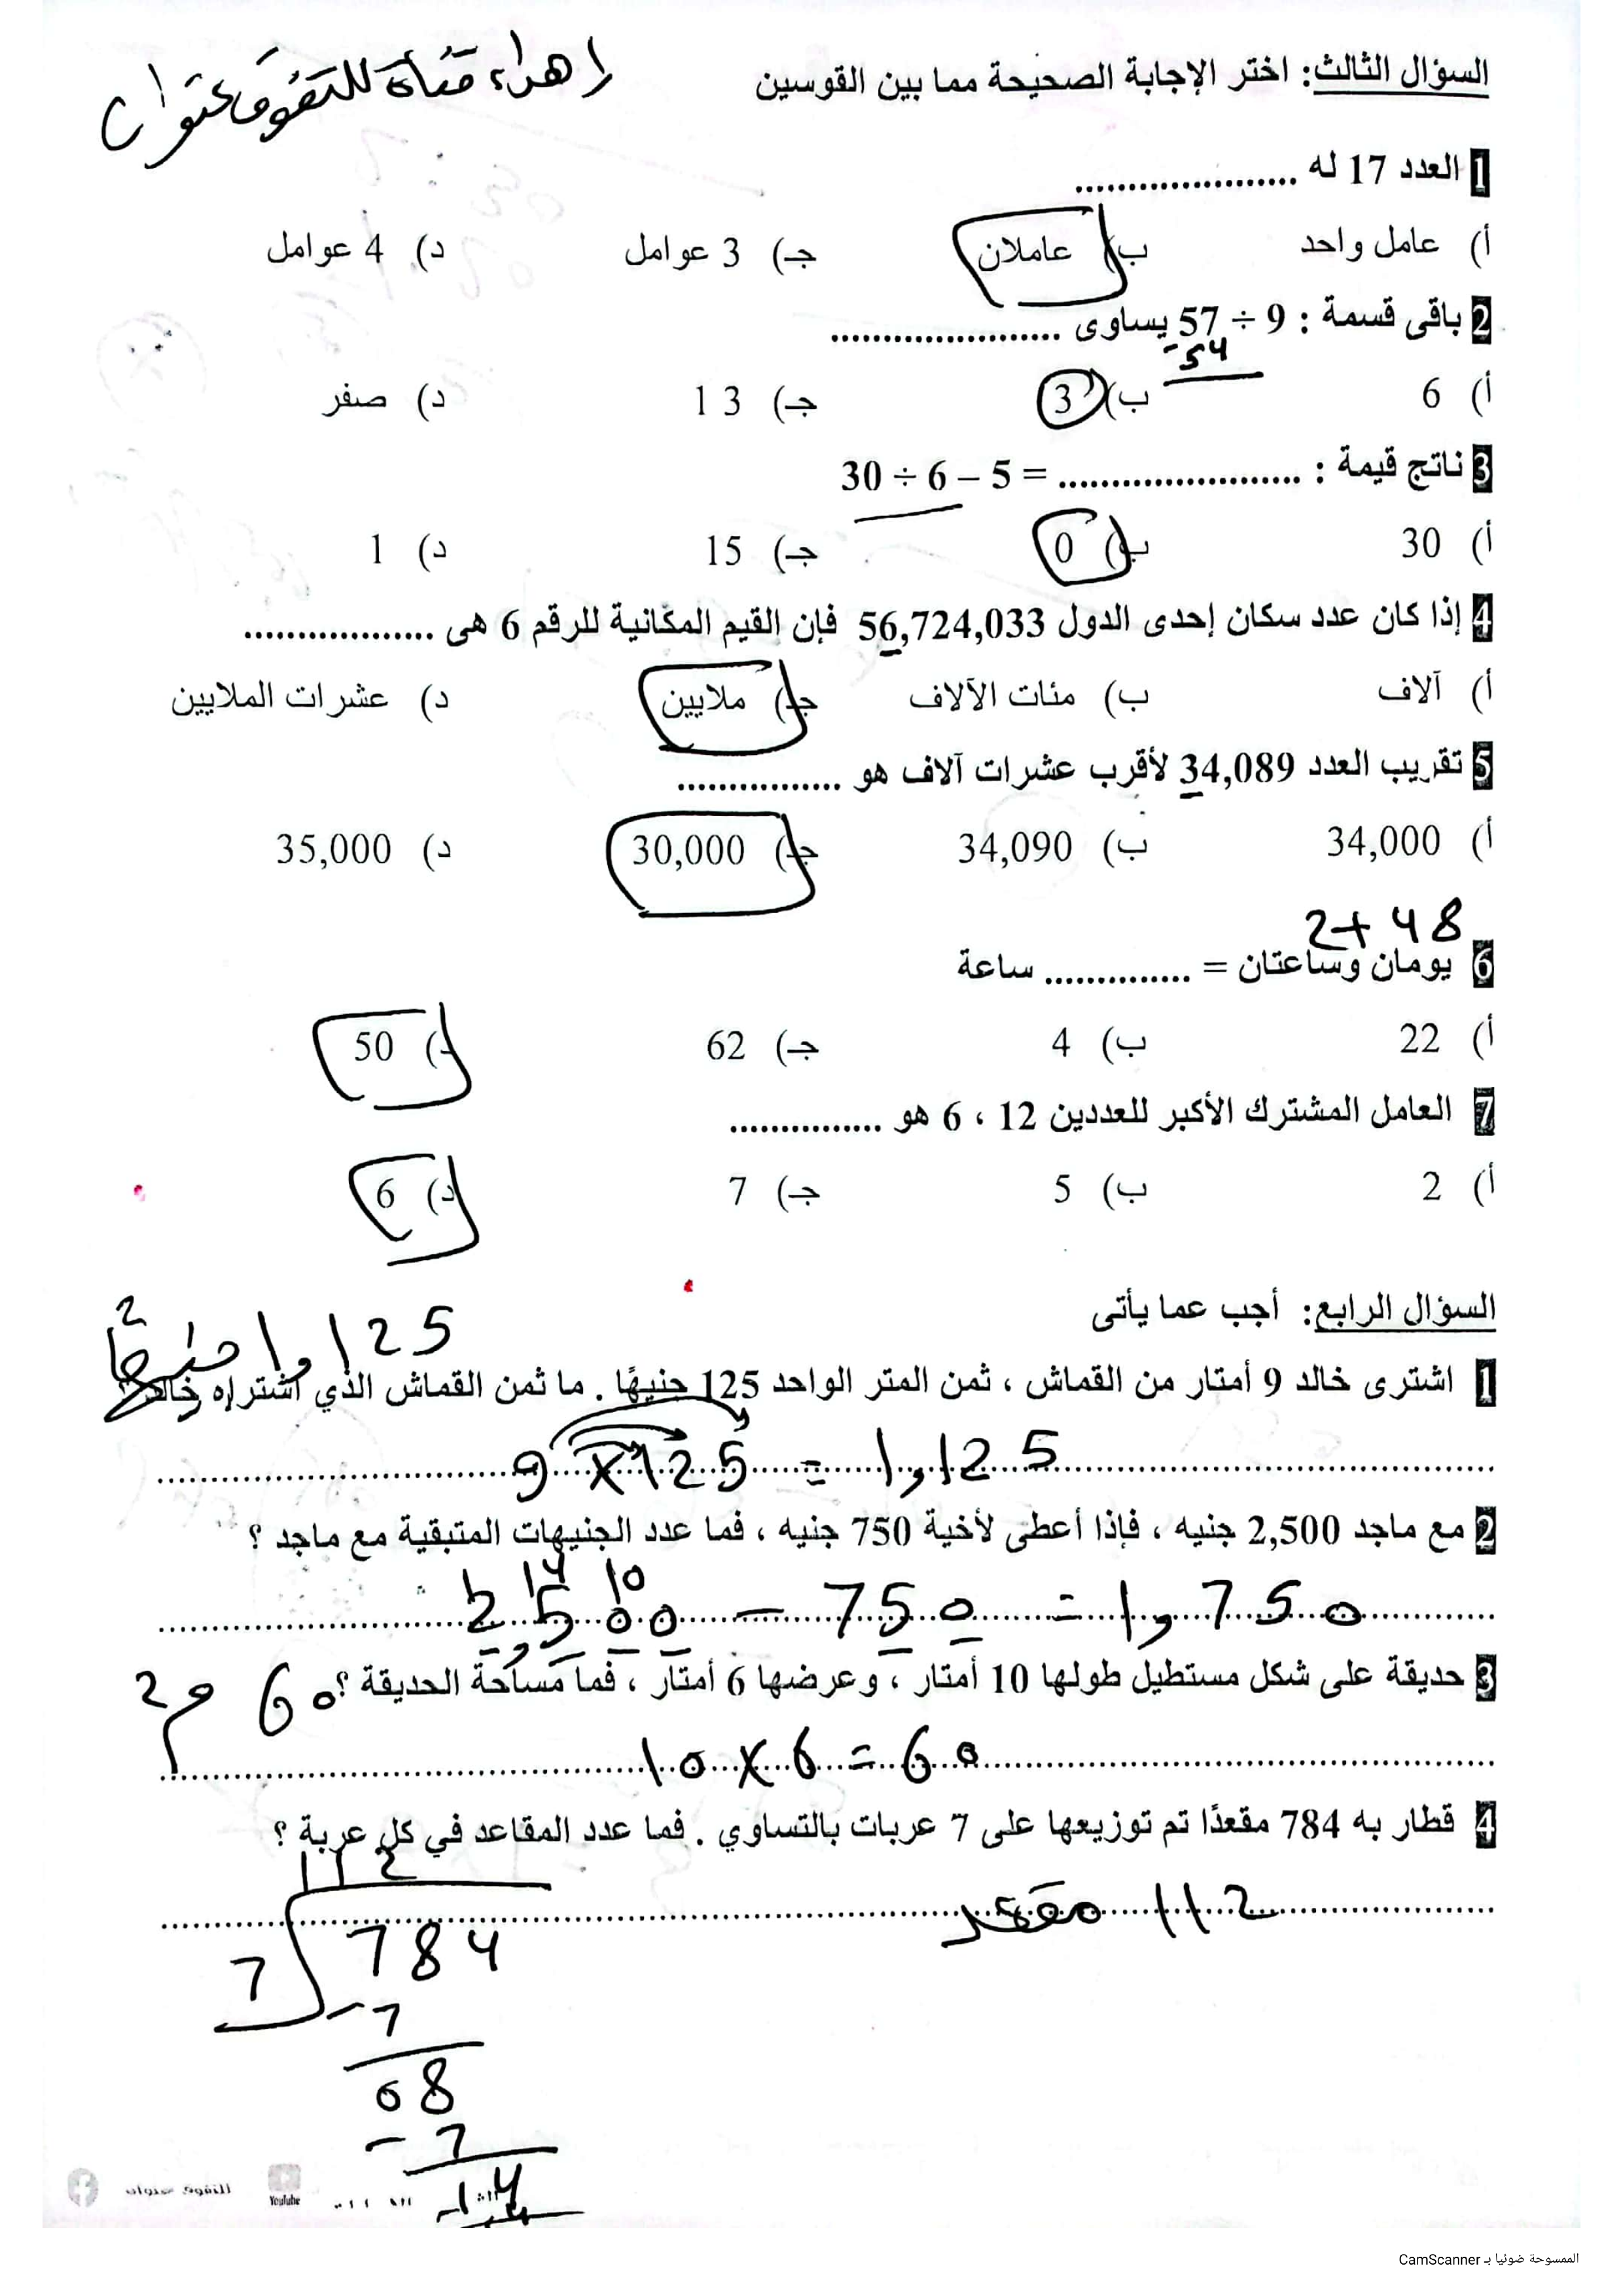 السؤال الثالث: اختر الإجابة الصحيحة مما بين القوسين
اهداء قناة للتفوق عنوان
1 العدد 17 له .....................
أ) عامل واحد ب) عاملان جـ) 3 عوامل د) 4 عوامل
2 باقى قسمة : 9 ÷ 57 يساوى ......................
-54
أ) 6 ب) 3 جـ) 13 د) صفر
3 ناتج قيمة : ....................... = 5 – 6 ÷ 30
أ) 30 ب) 0 جـ) 15 د) 1
4 إذا كان عدد سكان إحدى الدول 56,724,033 فإن القيم المكانية للرقم 6 هى ..................
أ) آلاف ب) مئات الآلاف جـ) ملايين د) عشرات الملايين
5 تقريب العدد 34,089 لأقرب عشرات آلاف هو ................
أ) 34,000 ب) 34,090 جـ) 30,000 د) 35,000
2+48
6 يومان وساعتان = .............. ساعة
أ) 22 ب) 4 جـ) 62 د) 50
7 العامل المشترك الأكبر للعددين 12 ، 6 هو ...............
أ) 2 ب) 5 جـ) 7 د) 6
السؤال الرابع: أجب عما يأتى
1,125
1 اشترى خالد 9 أمتار من القماش ، ثمن المتر الواحد 125 جنيهًا . ما ثمن القماش الذي اشتراه خالد؟
9 × 125 = 1,125
2 مع ماجد 2,500 جنيه ، فإذا أعطى لأخية 750 جنيه ، فما عدد الجنيهات المتبقية مع ماجد ؟
1 14 10
2,500 – 750 = 1,750
3 حديقة على شكل مستطيل طولها 10 أمتار ، وعرضها 6 أمتار ، فما مساحة الحديقة ؟ 60 م2
10 × 6 = 60
4 قطار به 784 مقعدًا تم توزيعها على 7 عربات بالتساوي . فما عدد المقاعد في كل عربة ؟
112 مقعد
112
7 784
-7
08
-7
14
للتفوق عنوان
YouTube
الممسوحة ضوئيا بـ CamScanner